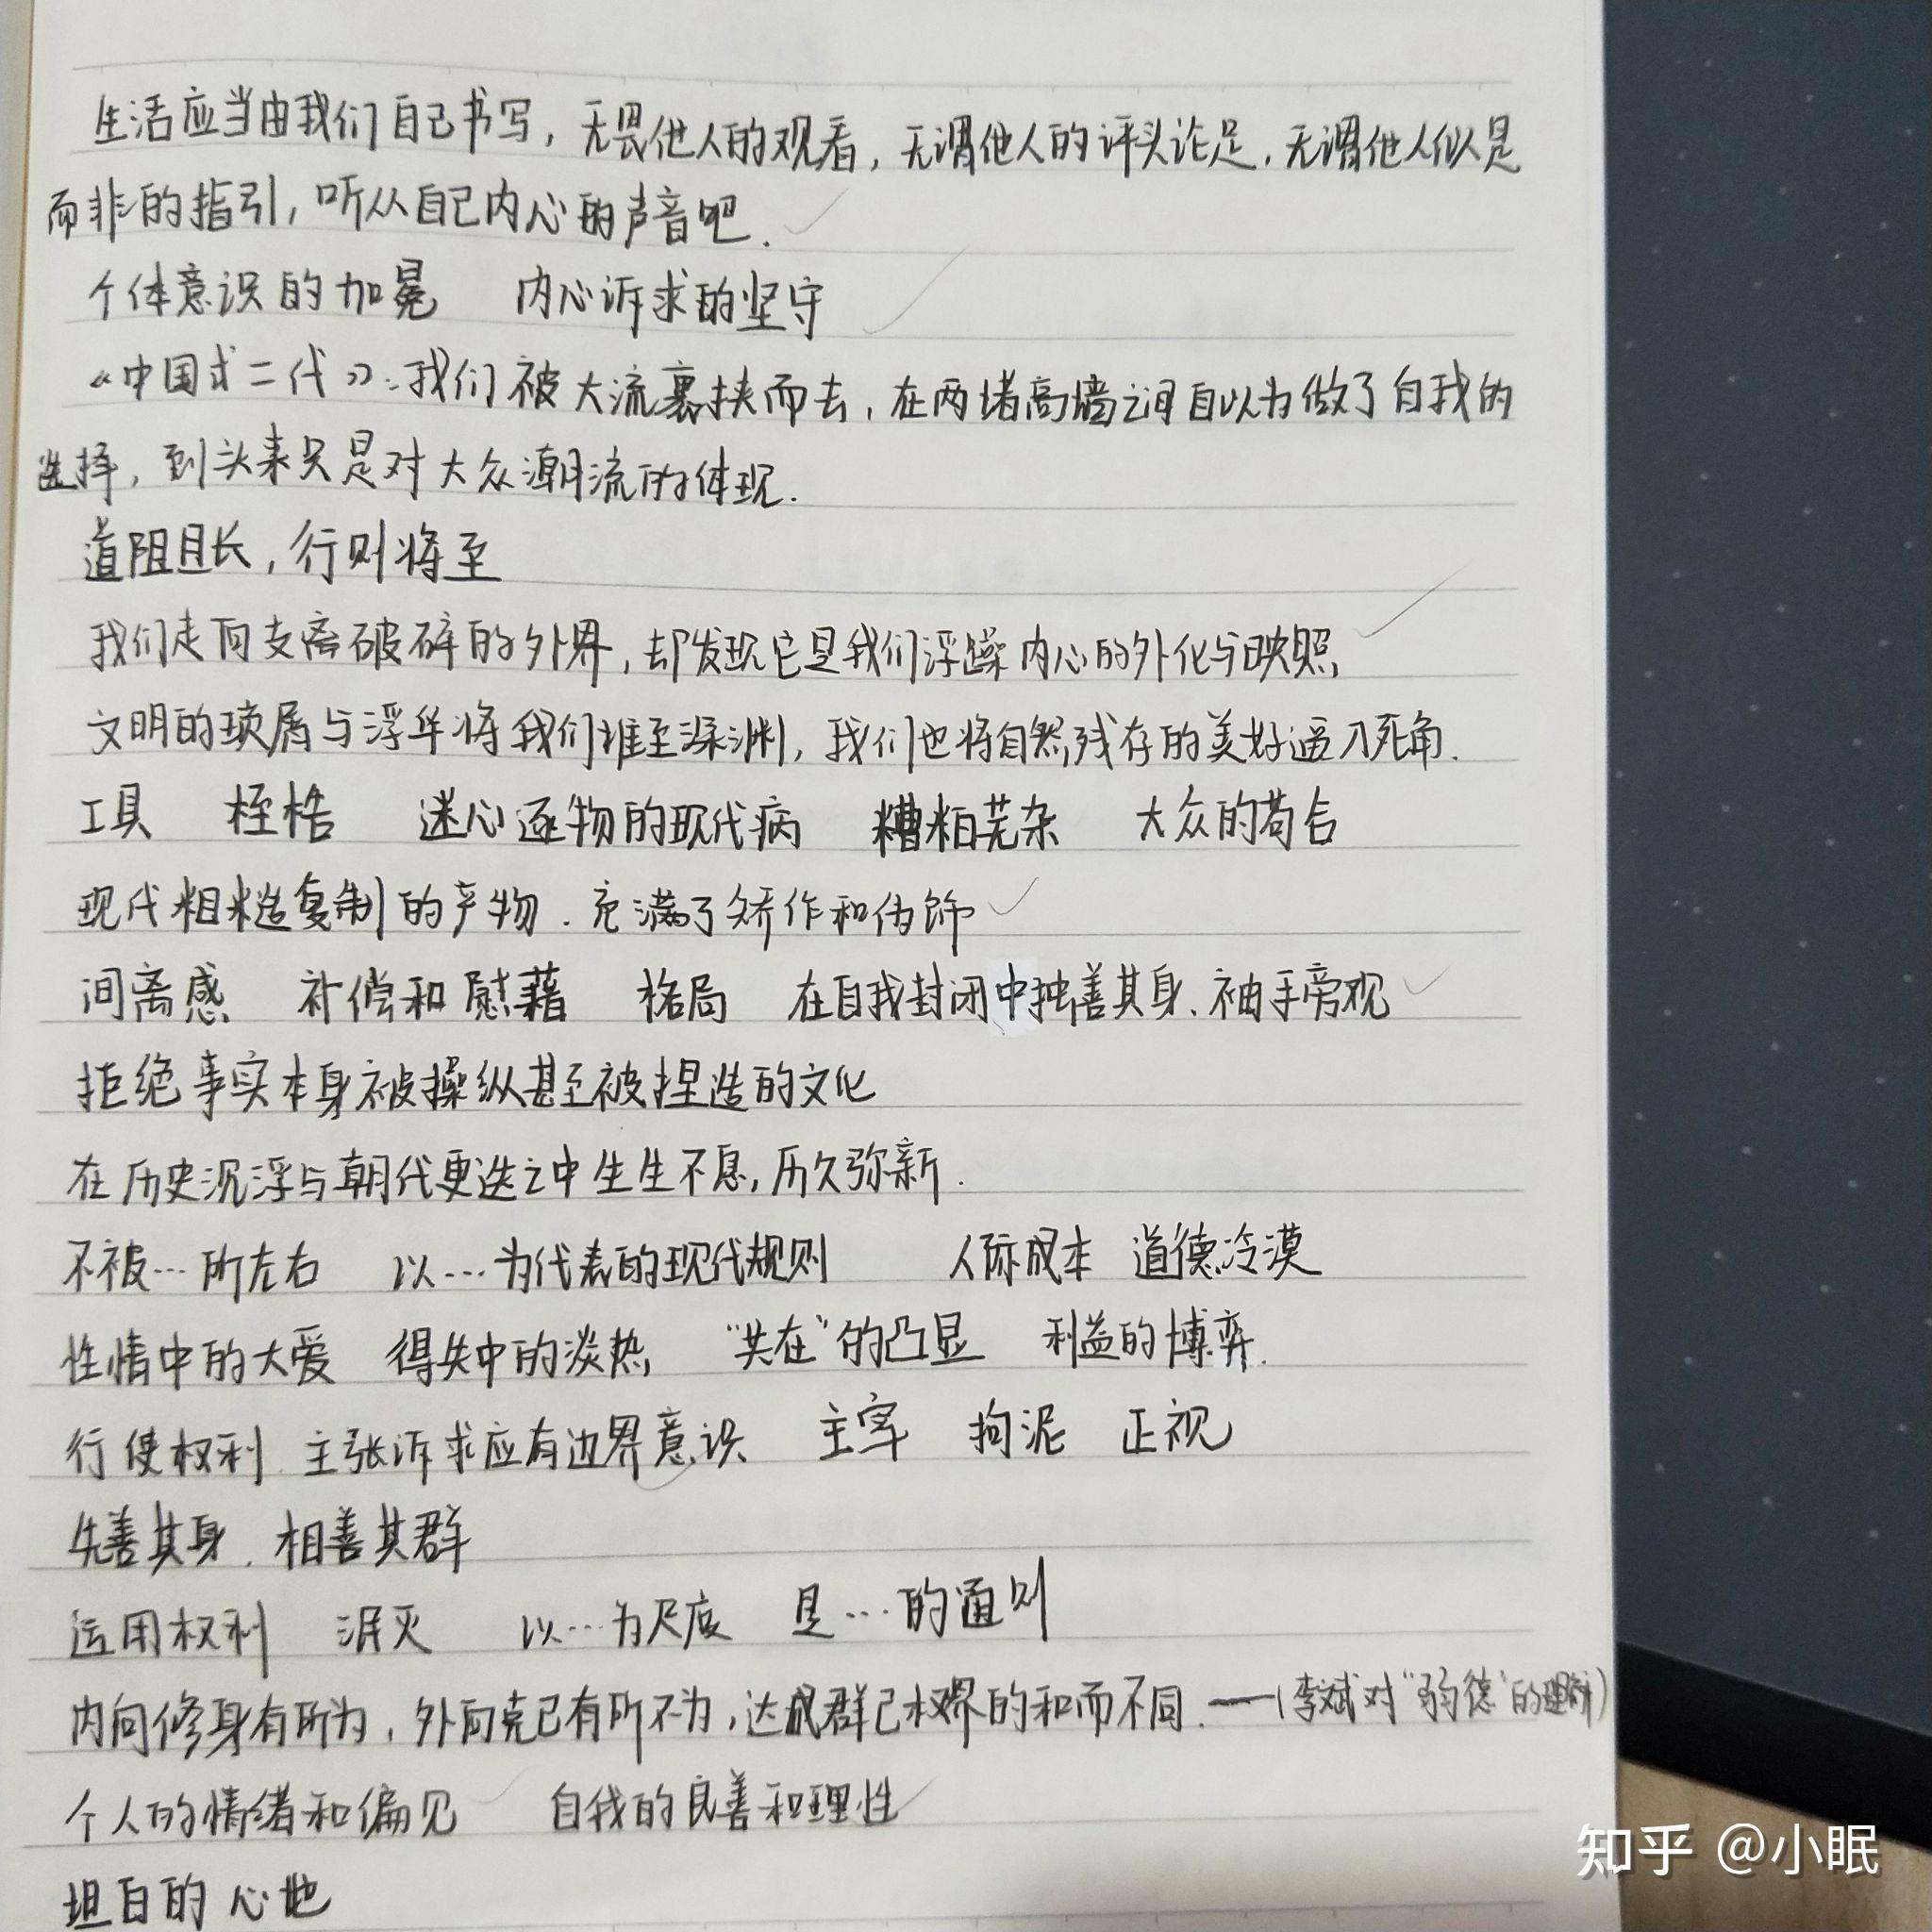 生活应当由我们自己书写，无畏他人的观看，无谓他人的评头论足，无谓他人似是
而非的指引，听从自己内心的声音吧.
个体意识的加冕 内心诉求的坚守
《中国式二代》：我们被大流裹挟而去，在两堵高墙之间自以为做了自我的
选择，到头来只是对大众潮流的体现.
道阻且长，行则将至
我们走向支离破碎的外界，却发现它是我们浮躁内心的外化与映照，
文明的琐屑与浮华将我们推至深渊，我们也将自然残存的美好逼入死角.
工具 桎梏 迷心逐物的现代病 糟粕芜杂 大众的苟合
现代粗糙复制的产物.充满了矫作和伪饰
间离感 补偿和慰藉 格局 在自我封闭中独善其身、袖手旁观
拒绝事实本身被操纵甚至被捏造的文化
在历史沉浮与朝代更迭之中生生不息，历久弥新.
不被…所左右 以…为代表的现代规则 人际成本 道德冷漠
性情中的大爱 得失中的淡然 “共在”的凸显 利益的博弈.
行使权利 主张诉求应有边界意识 主宰 拘泥 正视
先善其身.相善其群
运用权利 泯灭 以…为尺度 是…的通则
内向修身有所为，外向克己有所不为，达成群己权界的和而不同.——（李斌对“弱德”的理解）
个人的情绪和偏见 自我的良善和理性
坦白的心地
知乎 @小眠